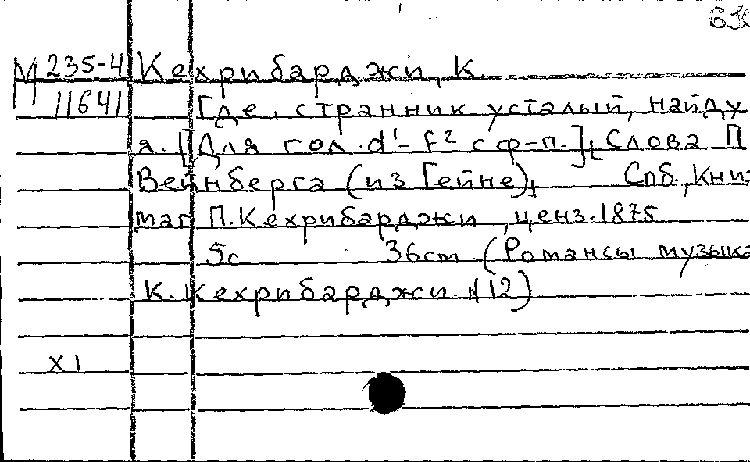 М 235-4 Кехрибарджи, К.
11641 Где, странник усталый, найду
я. [Для гол. d¹-f² с ф-п.], Слова П
Вейнберга (из Гейне), Спб, Кни
маг П. Кехрибарджи, ценз. 1875
5с 36cm (Романсы музыка
К. Кехрибарджи №12)
XI